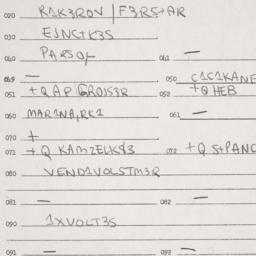 020 R1K3ROV/F3RS+AR
030 EJNC+K3S
040 PARSOL 041 —
049 — 050 C1C1KANE
051 +Q AP GROJS3R 052 +Q HEB
060 MAR1NA,RK1 061 —
070 +
071 +Q KAMZELKS 072 +Q S+PANC
080 VEND1VOLSTM3R
081 — 082 —
090 1XVOLT3S
091 — 092 —